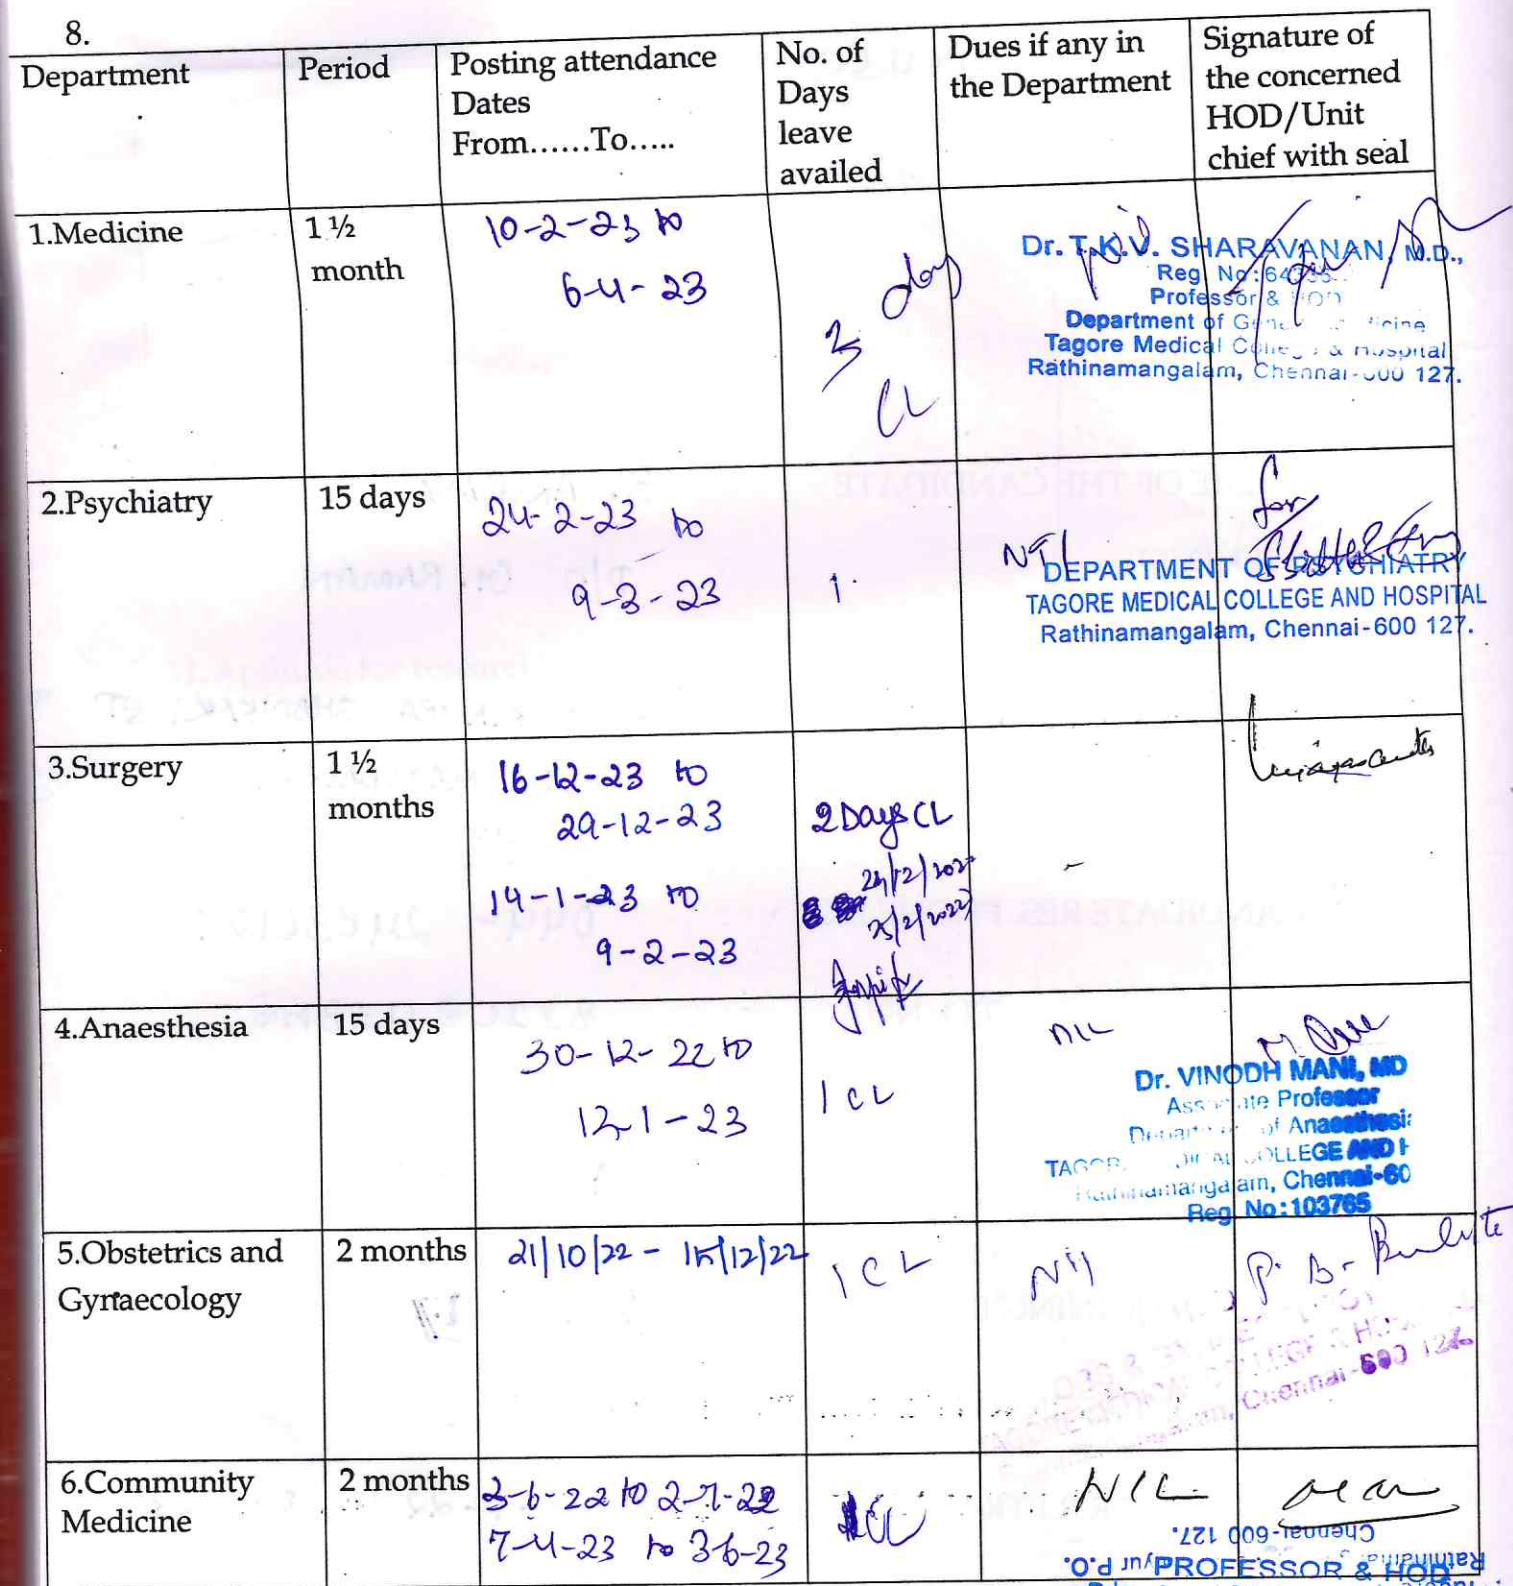 8.
Department
Period
Posting attendance
Dates
From......To.....
No. of
Days
leave
availed
Dues if any in
the Department
Signature of
the concerned
HOD/Unit
chief with seal
1.Medicine
1 ½
month
10-2-23 to
6-4-23
3 days
CL
Nil
Dr. T.K.V. SHARAVANAN, M.D.,
Reg No:
Professor & HOD
Department of General Medicine
Tagore Medical College & Hospital
Rathinamangalam, Chennai-600 127.
2.Psychiatry
15 days
24-2-23 to
9-3-23
1.
NIL
for
DEPARTMENT OF PSYCHIATRY
TAGORE MEDICAL COLLEGE AND HOSPITAL
Rathinamangalam, Chennai-600 127.
3.Surgery
1 ½
months
16-12-23 to
29-12-23
14-1-23 to
9-2-23
2 Days CL
-
4.Anaesthesia
15 days
30-12-22 to
12-1-23
1 CL
NIL
Dr. VINODH MANI, MD
Associate Professor
Department of Anaesthesia
TAGORE MEDICAL COLLEGE AND H
Rathinamangalam, Chennai-60
Reg No:103765
5.Obstetrics and
Gynaecology
2 months
21/10/22 - 15/12/22
1 CL
Nil
Chennai-600 127
6.Community
Medicine
2 months
3-6-22 to 2-7-22
7-4-23 to 3-6-23
NIL
Chennai-600 127.
PROFESSOR & HOD